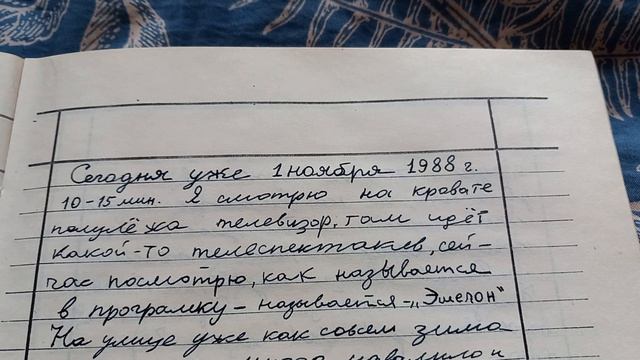 Сегодня уже 1 ноября 1988 г.
10-15 мин. Я смотрю на кровате
полулёжа телевизор, там идёт
какой-то телеспектакль, сей-
час посмотрю, как называется
в програмку - называется - „Эшелон"
На улице уже как совсем зима
навалило и